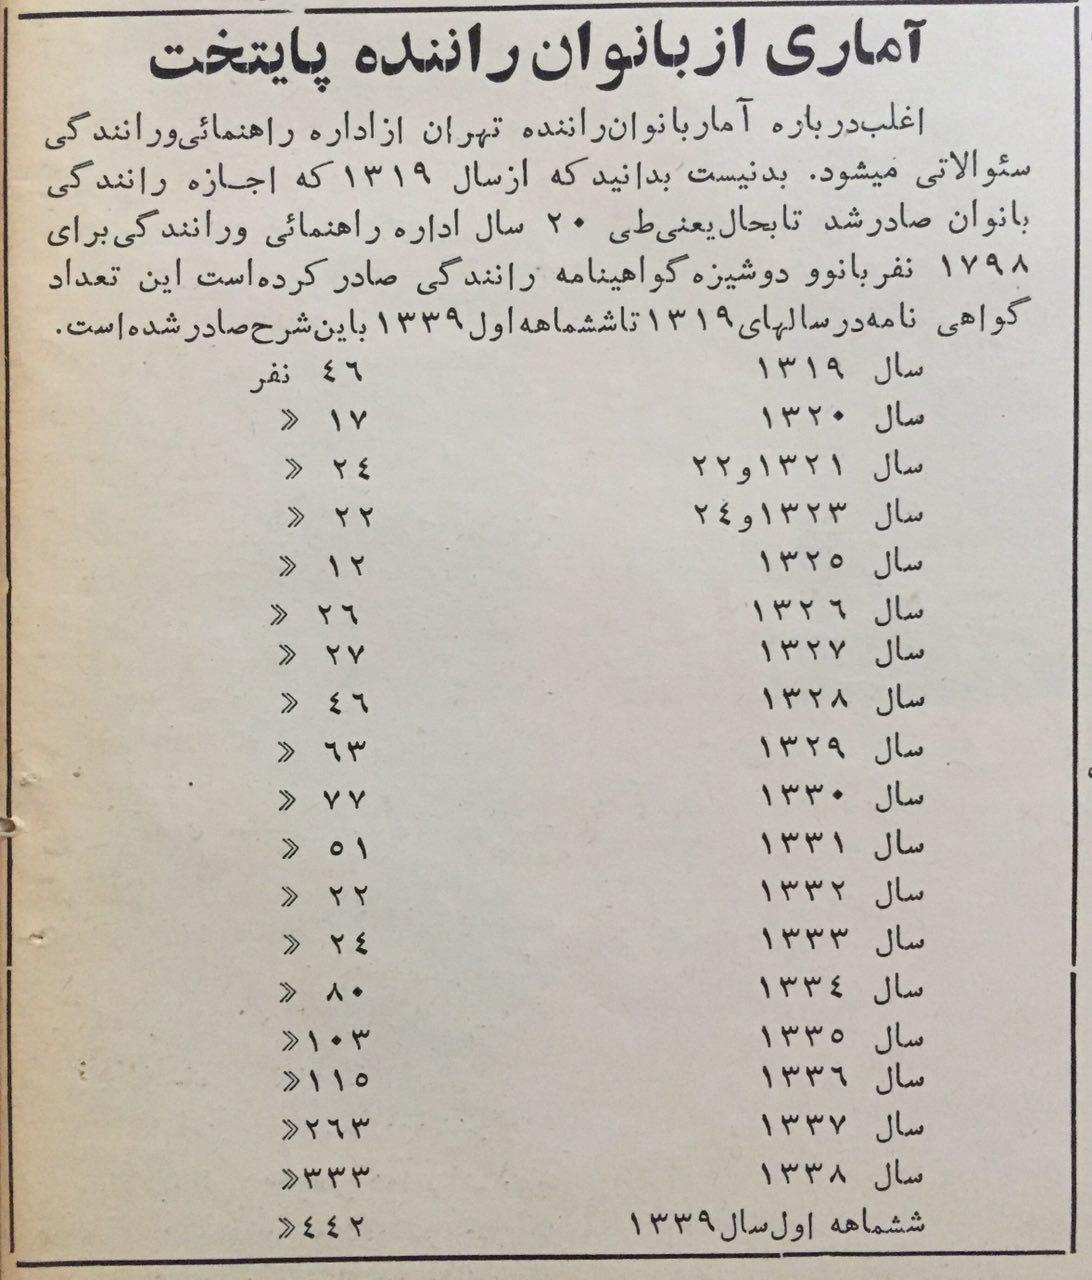 آماری از بانوان راننده پایتخت
اغلب درباره آمار بانوان راننده تهران از اداره راهنمائی ورانندگی
سئوالاتی میشود. بدنیست بدانید که از سال ۱۳۱۹ که اجازه رانندگی
بانوان صادر شد تابحال یعنی طی ۲۰ سال اداره راهنمائی ورانندگی برای
۱۷۹۸ نفر بانو و دوشیزه گواهینامه رانندگی صادر کرده است این تعداد
گواهی نامه در سالهای ۱۳۱۹ تا ششماهه اول ۱۳۳۹ باین شرح صادر شده است.
سال ۱۳۱۹ ۴۶ نفر
سال ۱۳۲۰ ۱۷ »
سال ۱۳۲۱ و ۲۲ ۲۴ »
سال ۱۳۲۳ و ۲۴ ۲۲ »
سال ۱۳۲۵ ۱۲ »
سال ۱۳۲۶ ۲۶ »
سال ۱۳۲۷ ۲۷ »
سال ۱۳۲۸ ۴۶ »
سال ۱۳۲۹ ۶۳ »
سال ۱۳۳۰ ۷۷ »
سال ۱۳۳۱ ۵۱ »
سال ۱۳۳۲ ۲۲ »
سال ۱۳۳۳ ۲۴ »
سال ۱۳۳۴ ۸۰ »
سال ۱۳۳۵ ۱۰۳ »
سال ۱۳۳۶ ۱۱۵ »
سال ۱۳۳۷ ۲۶۳ »
سال ۱۳۳۸ ۳۳۳ »
ششماهه اول سال ۱۳۳۹ ۴۴۲ »